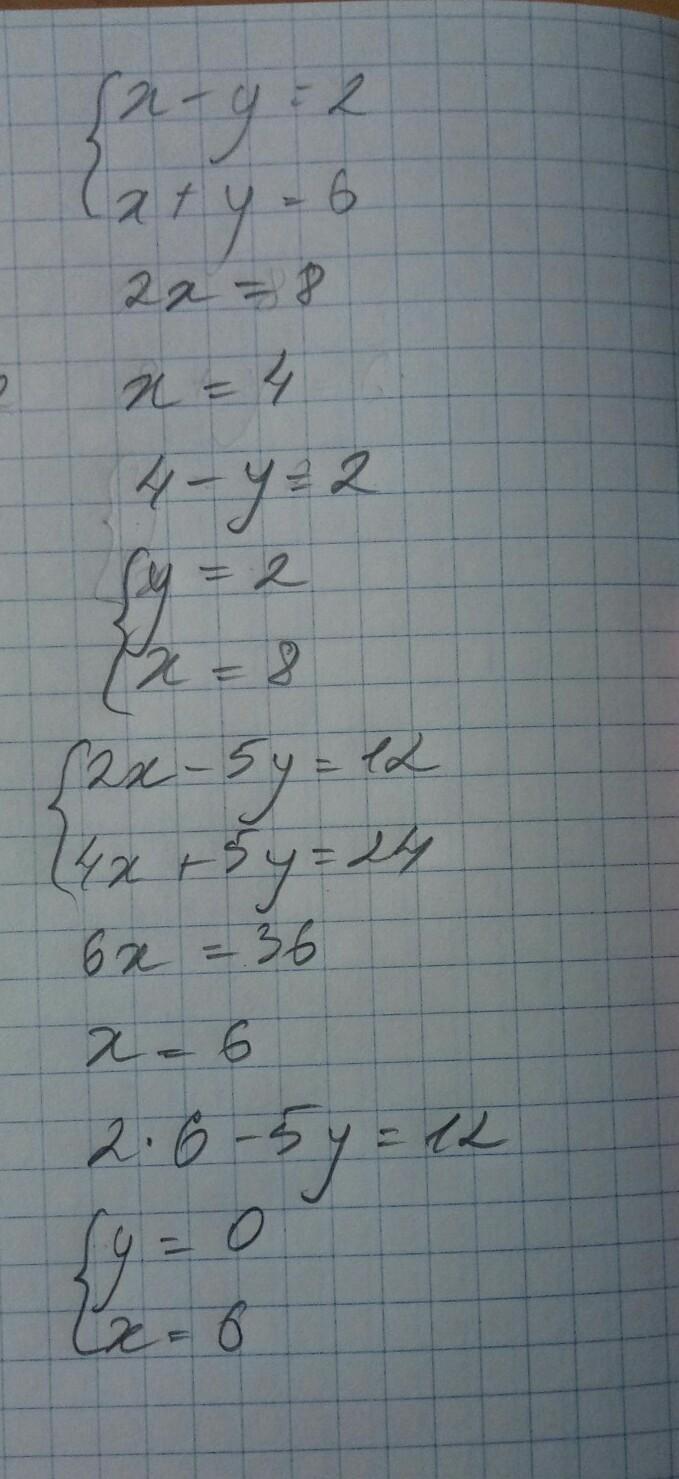 {x - y = 2
x + y = 6
2x = 8
x = 4
4 - y = 2
{y = 2
x = 8
{2x - 5y = 12
4x + 5y = 24
6x = 36
x = 6
2 · 6 - 5y = 12
{y = 0
x = 6